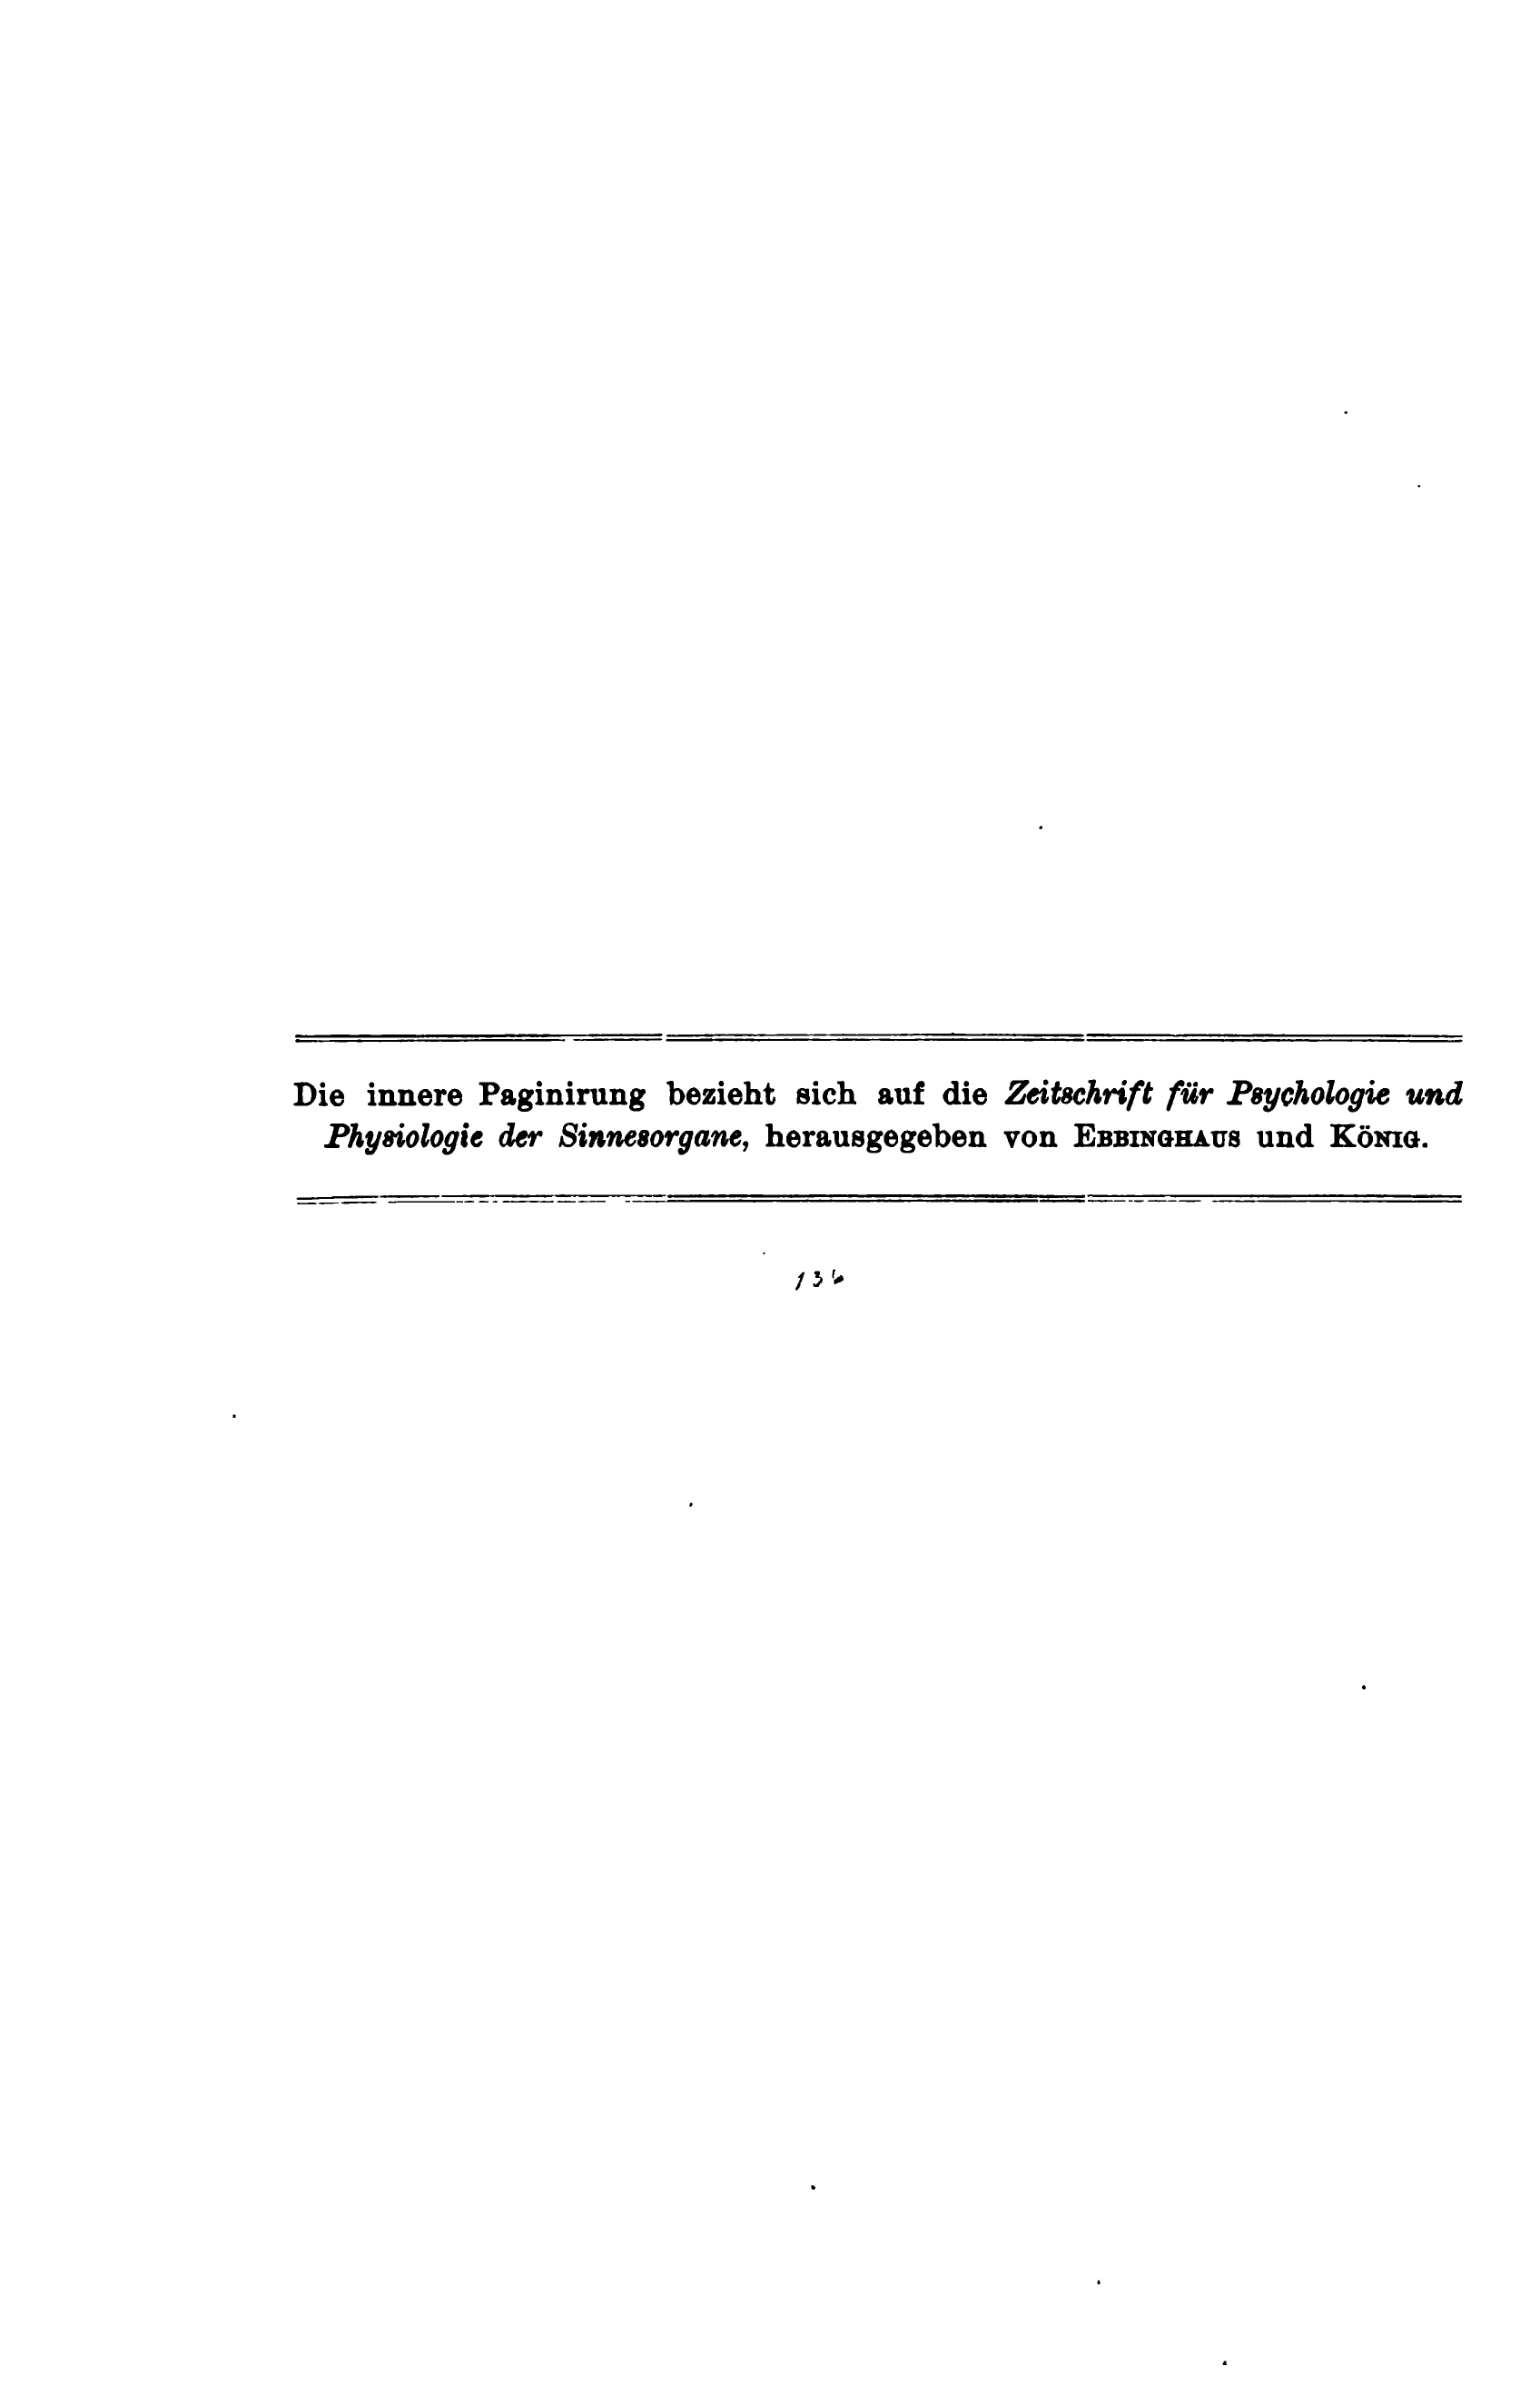 Die innere Paginirung bezieht sich auf die Zeitschrift für Psychologie und
Physiologie der Sinnesorgane, herausgegeben von Ebbinghaus und König.
136